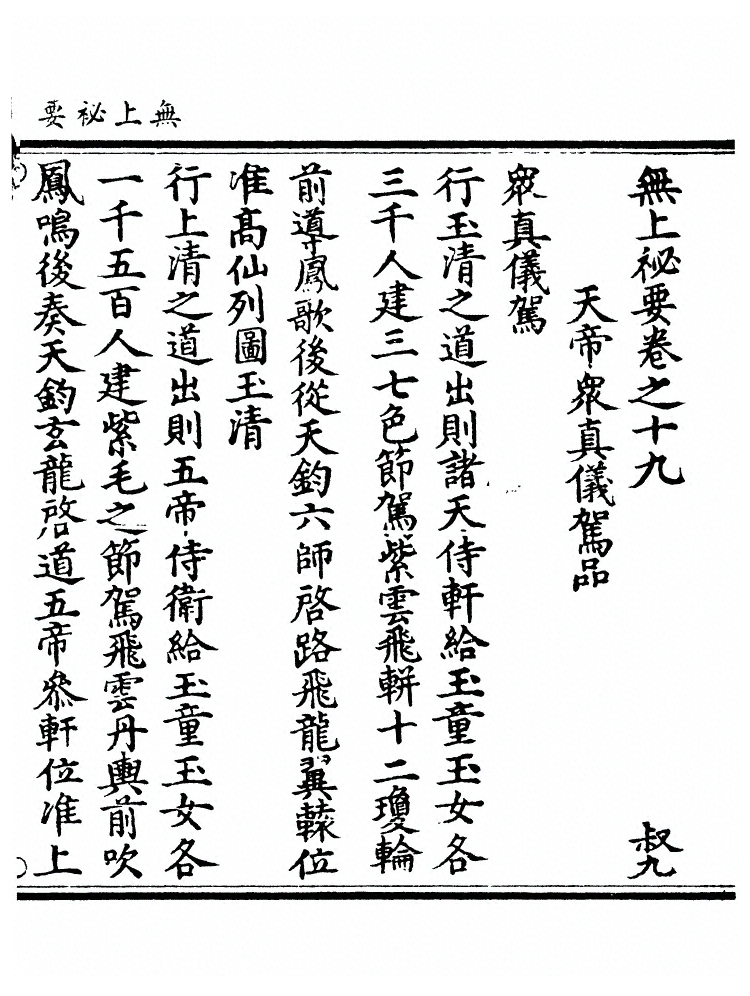 無上祕要
無上祕要卷之十九 叔九
天帝衆真儀駕品
衆真儀駕
行玉清之道出則諸天侍軒給玉童玉女各
三千人建三七色節駕紫雲飛軿十二瓊輪
前導鳳歌後從天鈞六師啓路飛龍翼轅位
准髙仙列圖玉清
行上清之道出則五帝侍衛給玉童玉女各
一千五百人建紫毛之節駕飛雲丹輿前吹
鳳鳴後奏天鈞玄龍啓道五帝叅軒位准上